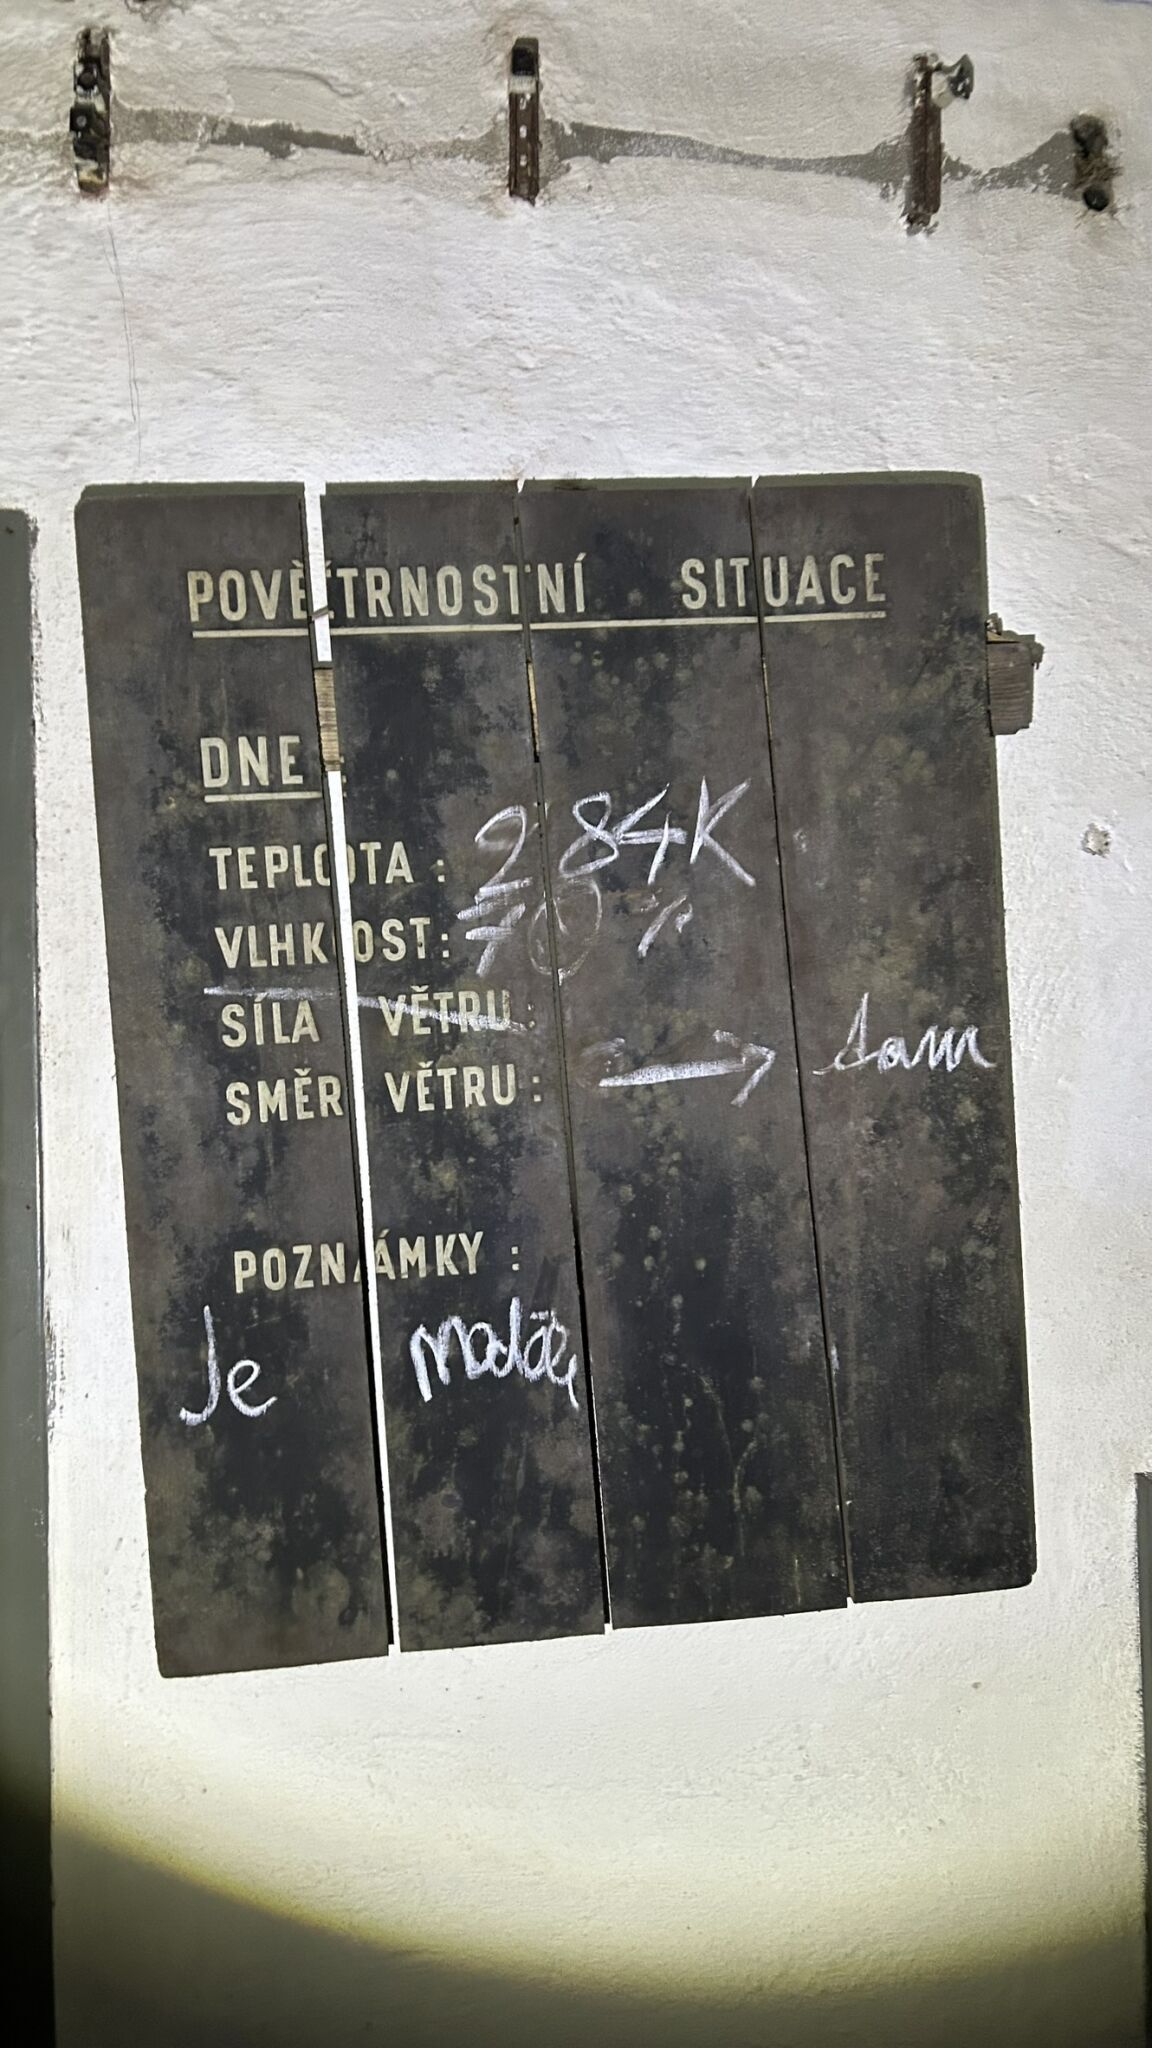 POVĚTRNOSTNÍ SITUACE
DNE :
TEPLOTA : 284K
VLHKOST: 70 %
SÍLA VĚTRU :
SMĚR VĚTRU : → tam
POZNÁMKY :
Je